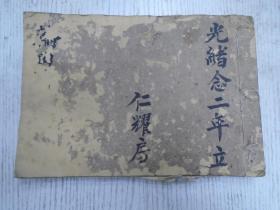 光緒念二年立
仁耀房